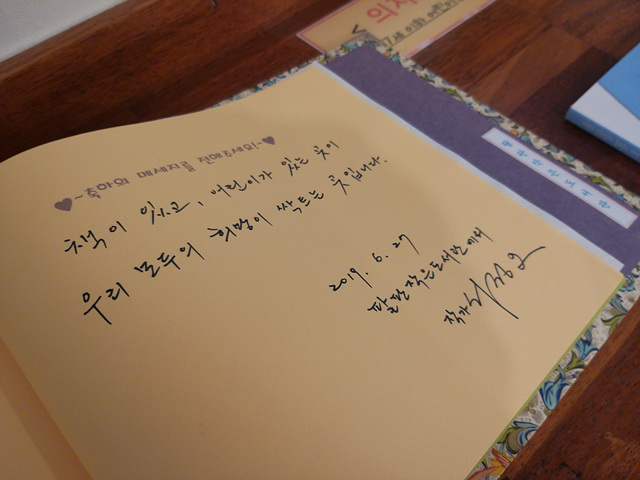 ~축하의 메세지를 전해주세요!~
책이 있고, 어린이가 있는 곳이
우리 모두의 희망이 싹트는 곳입니다.
2019. 6. 27
팔판작은도서관에서
작가